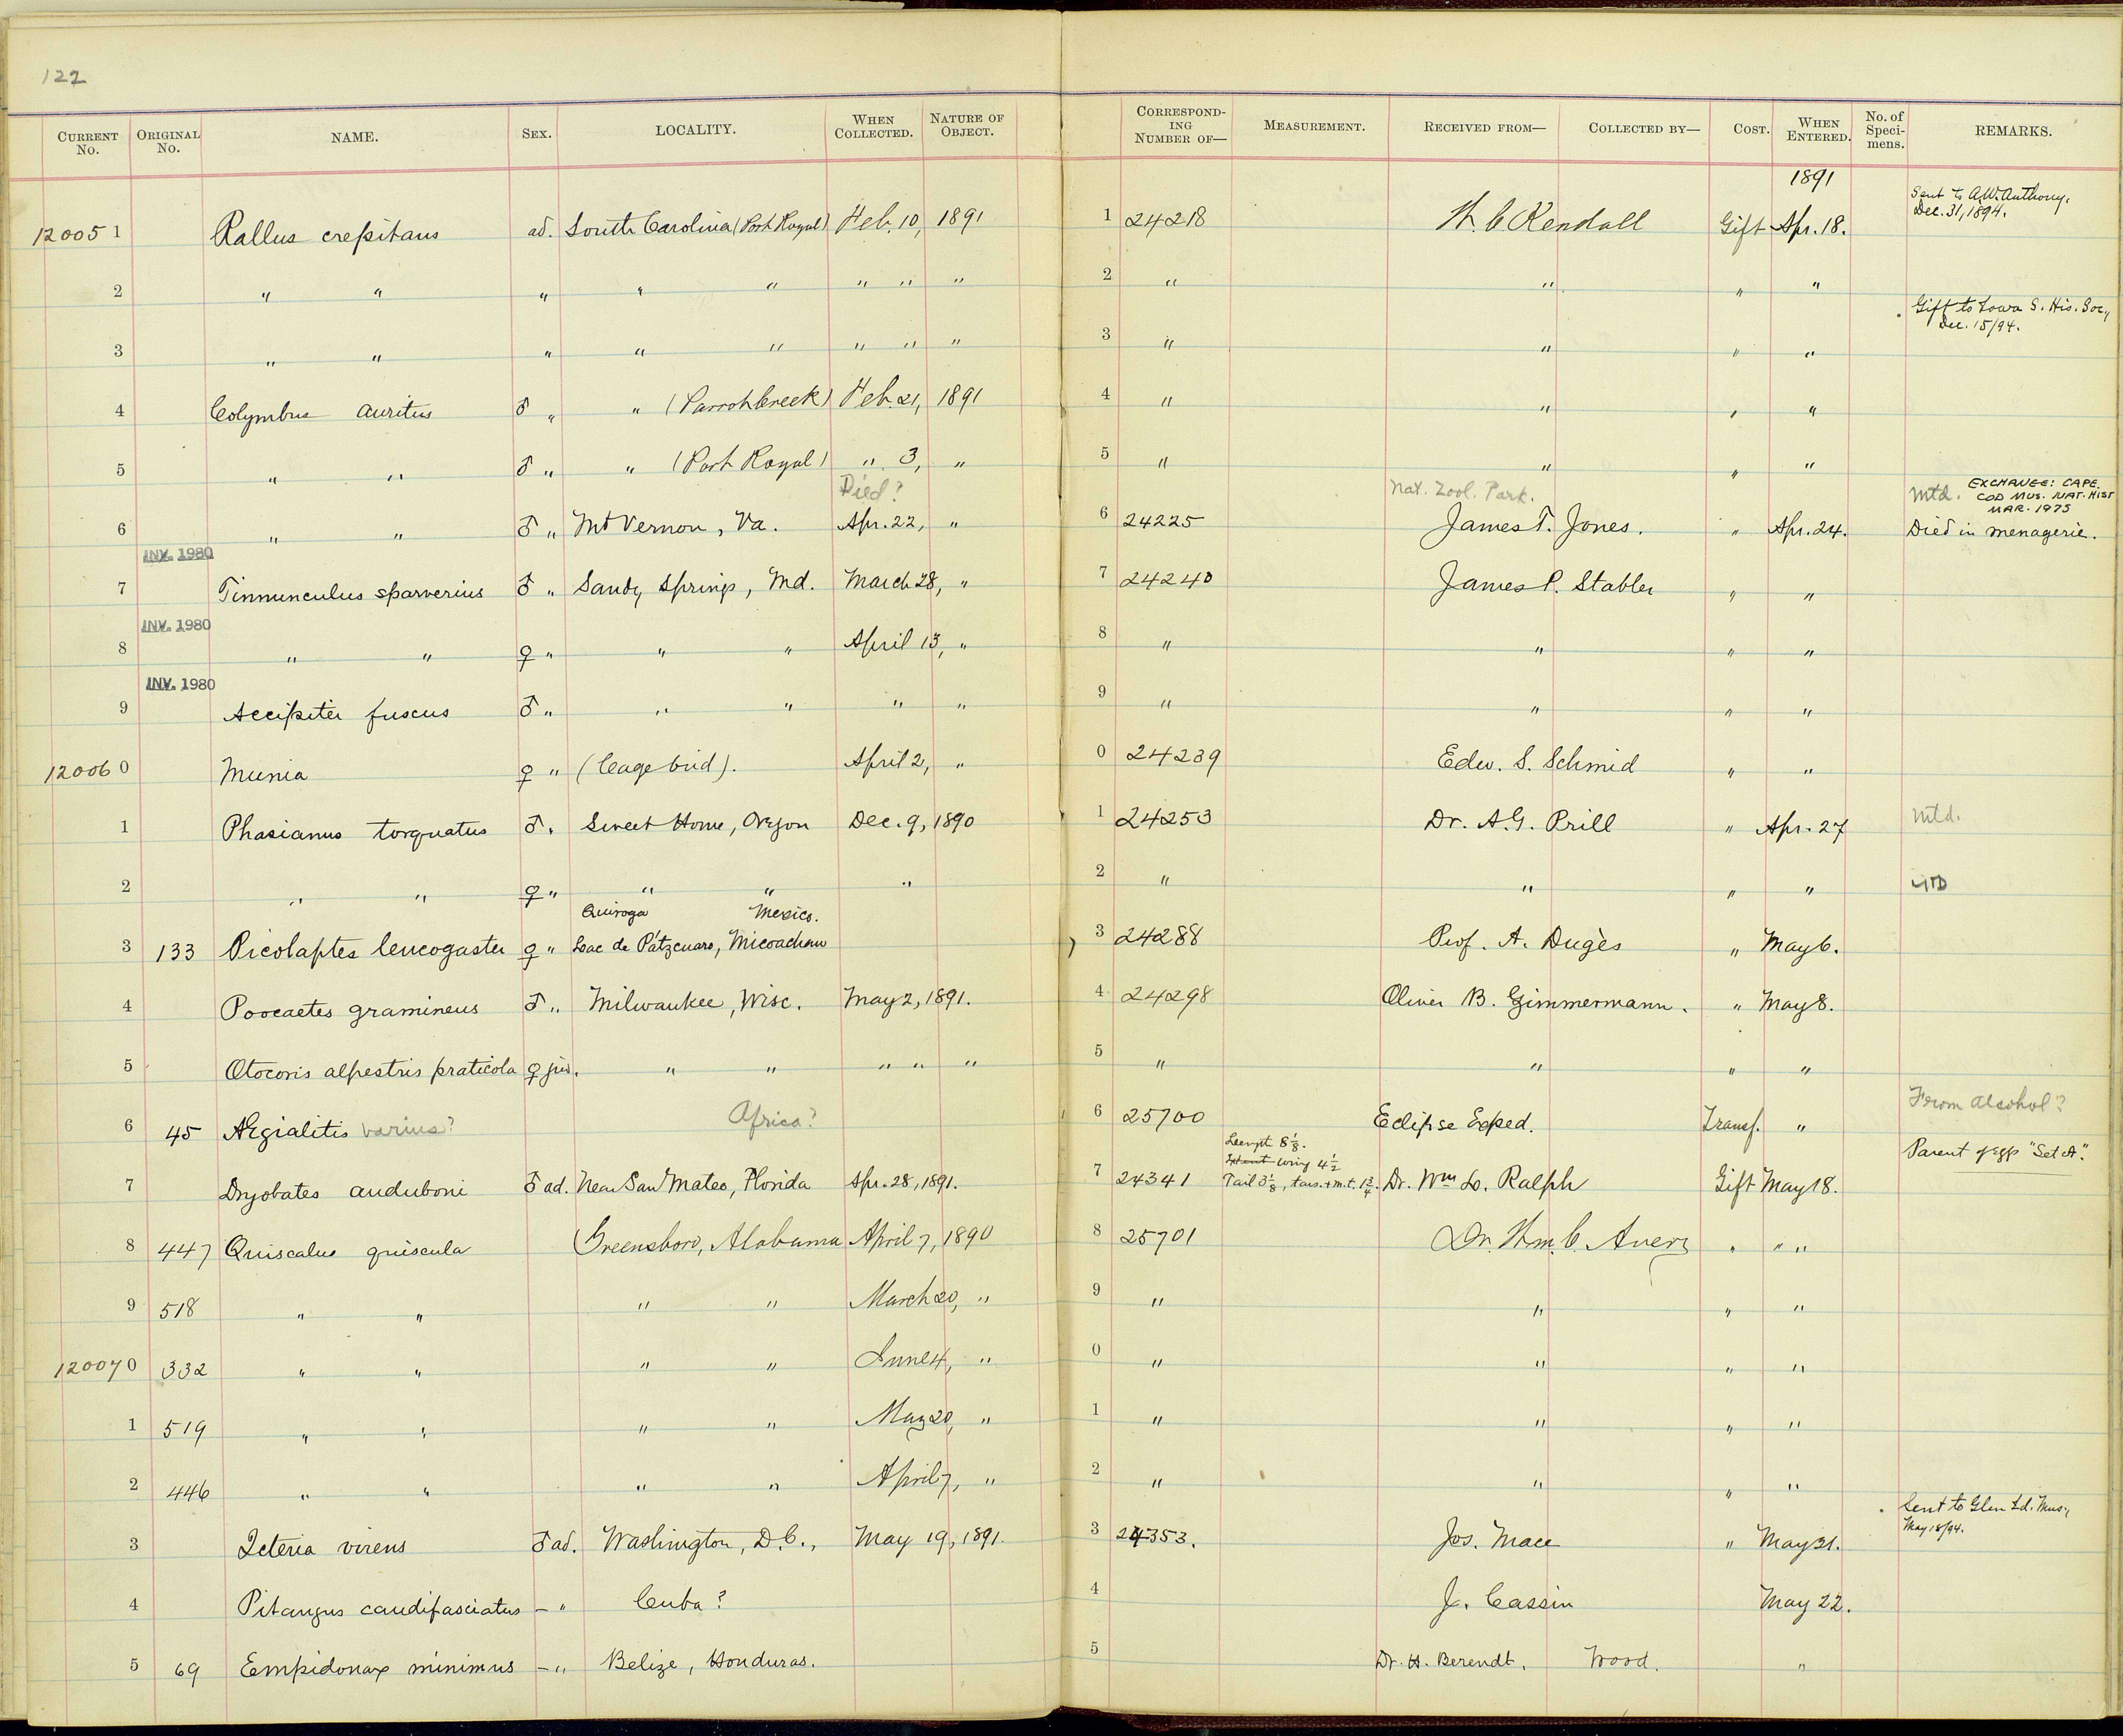 122
CURRENT No. ORIGINAL No. NAME. SEX. LOCALITY. WHEN COLLECTED. NATURE OF OBJECT. CORRESPONDING NUMBER OF— MEASUREMENT. RECEIVED FROM— COLLECTED BY— COST. WHEN ENTERED. No. of Specimens. REMARKS.
1891
Sent to A.W. Anthony.
Dec. 31, 1894.
12005 1 Rallus crepitans ad. South Carolina (Port Royal) Feb. 10, 1891 1 24218 W. C. Kendall Gift Apr. 18.
2 " " " " " " " " 2 " " " "
Gift to Iowa S. His. Soc.,
Dec. 15/94.
3 " " " " " " " " 3 " " " "
4 Colymbus auritus ♂ " " (Parrot Creek) Feb. 21, 1891 4 " " " "
5 " " ♂ " " (Port Royal) " 3, " 5 " " " "
Died? Nat. Zool. Park. Mtd. EXCHANGE: CAPE
COD MUS. NAT. HIST
MAR. 1975
6 " " ♂ " Mt Vernon, Va. Apr. 22, " 6 24225 James T. Jones. " Apr. 24. Died in menagerie.
INV. 1980
7 Tinnunculus sparverius ♂ " Sandy Springs, Md. March 28, " 7 24240 James P. Stabler " "
INV. 1980
8 " " ♀ " " " April 13, " 8 " " " "
INV. 1980
9 Accipiter fuscus ♂ " " " " " 9 " " " "
12006 0 Munia ♀ " (Cage bird). April 2, " 0 24239 Edw. S. Schmid " "
1 Phasianus torquatus ♂ " Sweet Home, Oregon Dec. 9, 1890 1 24253 Dr. A. G. Prill " Apr. 27 Mtd.
2 " " ♀ " " " " 2 " " " " MTD
Quiroga Mexico.
3 133 Picolaptes leucogaster ♀ " Lac de Pátzcuaro, Micoachan 3 24288 Prof. A. Dugès " May 6.
4 Poocaetes gramineus ♂ " Milwaukee, Wisc. May 2, 1891. 4 24298 Oliver B. Zimmermann. " May 8.
5 Otocoris alpestris praticola ♀ juv. " " " " " 5 " " " "
Africa? From alcohol?
6 45 Aegialitis varius? 6 25700 Eclipse Exped. Transf. "
Lenght 8 1/8.
Extent wing 4 1/2
Parent of egg "Set A".
7 Dryobates auduboni ♂ ad. Near San Mateo, Florida Apr. 28, 1891. 7 24341 Tail 3 1/8, tars. + m.t. 1 3/4. Dr. Wm L. Ralph Gift May 18.
8 447 Quiscalus quiscula Greensboro, Alabama April 7, 1890 8 25701 Dr. Wm. C. Avery " " "
9 518 " " " " March 20, " 9 " " " "
12007 0 332 " " " " June 4, " 0 " " " "
1 519 " " " " May 20, " 1 " " " "
2 446 " " " " April 7, " 2 " " " "
Sent to Glen Id. Mus.,
May 18/94.
3 Icteria virens ♂ ad. Washington, D.C., May 19, 1891. 3 24353. Jos. Mace " May 21.
4 Pitangus caudifasciatus – " Cuba? 4 J. Cassin May 22.
5 69 Empidonax minimus – " Belize, Honduras. 5 Dr. H. Berendt. Wood. "